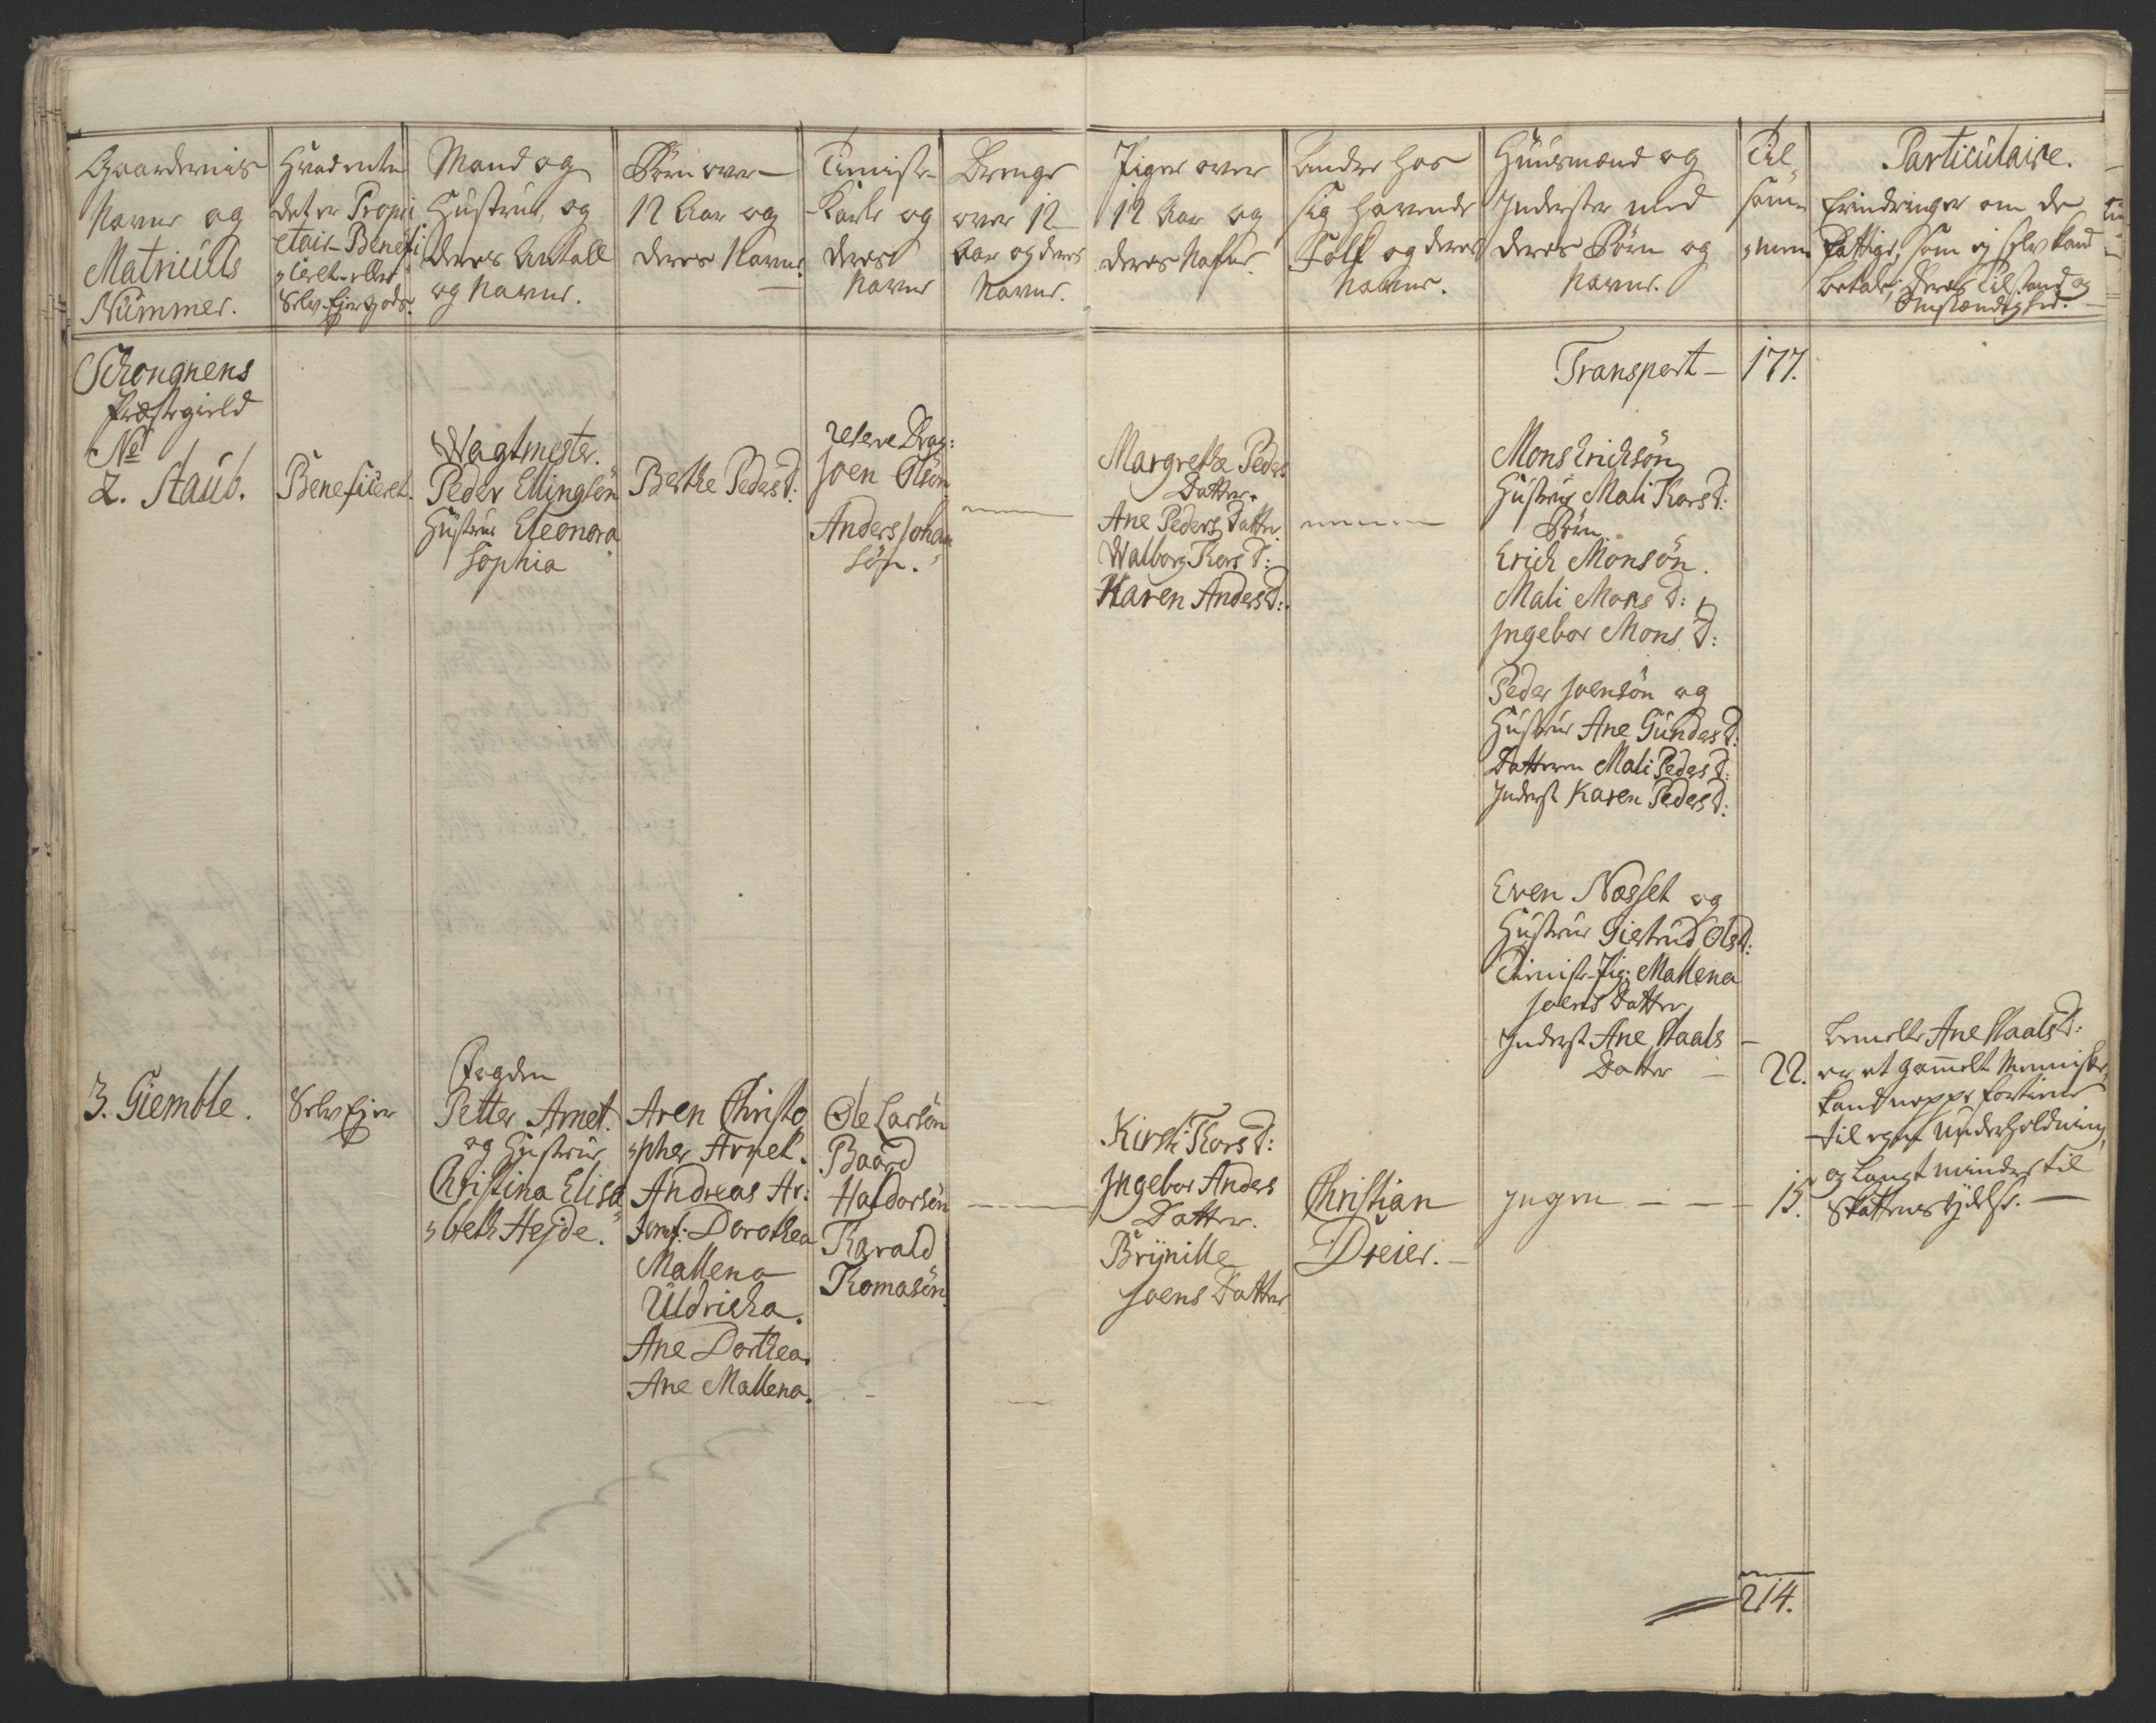 Gaardernis
Navne og
Matriculs
Nummer.
Hvad enten
det er Propri
etair- Benefi
„ceret- eller
Selv-Ejer gods.
Mand og
Hustrue, og
deres Antall
og Navne.
Børn over
12 Aar og
deres Navne.
Tienist-
Karle og
deres
Navne
Drenge
over 12
Aar og deres
Navne.
Piger over
12 Aar og
deres Nafne.
Andre hos
sig havende
Folk og deres
Navne.
Huusmænd og
Inderster med
deres Børn og
Navne.
Til
sam„
„men
Particulaire.
Erindringer om de
Fattige, som ej selv kand
betale, deres Tilstand og
Omstændighed.
Schongnens
Præstegield
No
2. Staub.
Beneficeret.
Wagtmester.
Peder Ellingsøn
Hustrue Eleonora
Sophia
Berthe Peders D:
reserve Drag:
Joen Olsøn
Anders Johan
søn.
Margrethe Peders
Datter.
Ane Peders Datter.
Walborg Thors D:
Karen Anders D:
Transport — 177.
Mons Erichsøn
Hustrue Mali Thors D:
Børn
Erich Monsøn.
Mali Mons D:
Ingebor Mons D:
Peder Joensøn og
Hustrue Ane Gunders D:
Datteren Mali Peders D:
Inderst Karen Peders D:
Even Næsset og
Hustrue Giertrud Ols D:
Tieniste Pig: Mallena
Joens Datter
Inderst Ane Staals —
Datter — 22.
Bemelte Ane Staals D:
er et gammelt Menniske,
kand neppe fortiene
til egen Underholdning,
og langt mindre til
Skattens ydelse. —
3. Giemble.
Selv Ejer
Fogden
Petter Arnet.
og Hustrue
Christina Elisa
„beth Hejde.
Aren Christo
„pher Arnet.
Andreas Ar:
Jomf: Dorothea
Mallena
Uldricha.
Ane Dorthea.
Ane Mallena.
Ole Larsøn
Baard
Haldorsøn
Harald
Thomasøn.
Kirsti Thors D:
Ingebor Anders
Datter.
Brynille
Joens Datter
Christian
Dreier. —
Ingen — — — 15.
214.